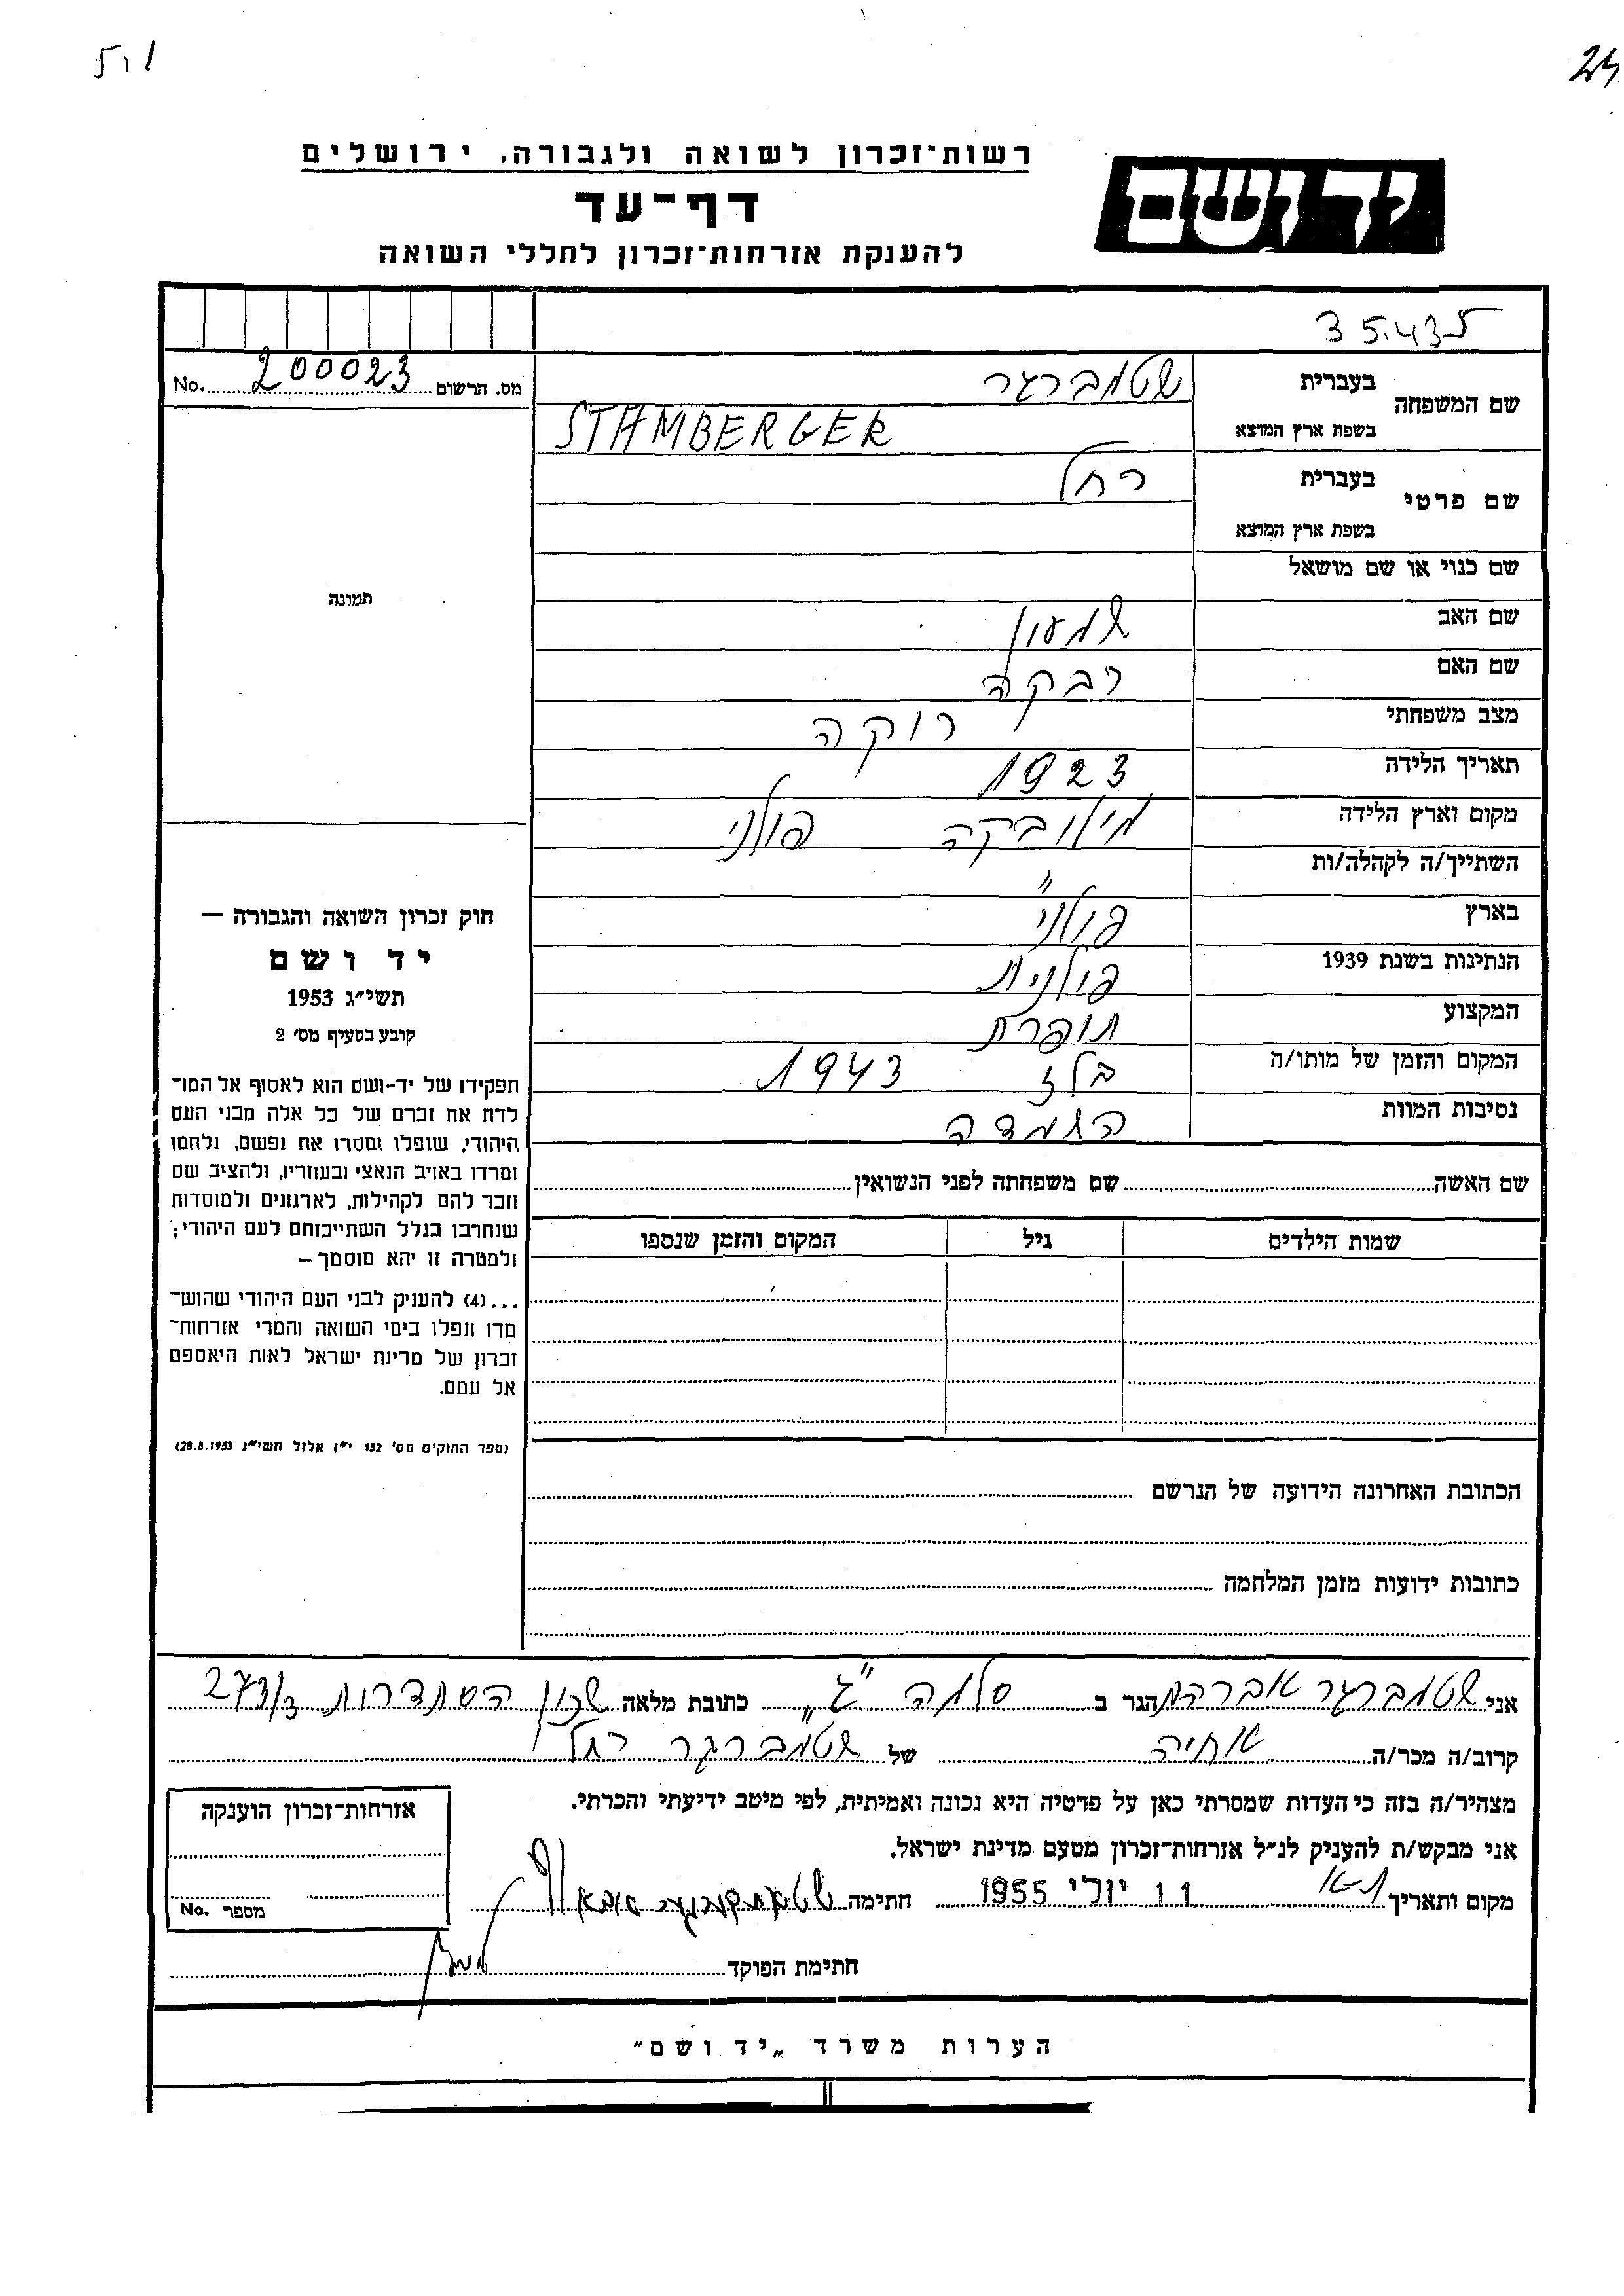 רשות־זכרון לשואה ולגבורה, ירושלים
יד ושם
דף-עד
להענקת אזרחות־זכרון לחללי השואה
מס. הרשום 200023 No.
שם המשפחה
בעברית שטמברגר
בשפת ארץ המוצא STAMBERGER
שם פרטי
בעברית רחל
בשפת ארץ המוצא
שם כנוי או שם מושאל
תמונה
שם האב שמעון
שם האם רבקה
מצב משפחתי רוקה
תאריך הלידה 1923
מקום וארץ הלידה מילובקה פולני
השתייך/ה לקהלה/ות "
בארץ פולני
הנתינות בשנת 1939 פולנית
המקצוע תופרת
המקום והזמן של מותו/ה בלז 1943
נסיבות המוות השמדה
חוק זכרון השואה והגבורה —
יד ושם
תשי״ג 1953
קובע בסעיף מס׳ 2
תפקידו של יד-ושם הוא לאסוף אל המו־
לדת את זכרם של כל אלה מבני העם
היהודי, שנפלו ומסרו את נפשם, נלחמו
ומרדו באויב הנאצי ובעוזריו, ולהציב שם
וזכר להם לקהילות, לארגונים ולמוסדות
שנחרבו בגלל השתייכותם לעם היהודי;
ולמטרה זו יהא מוסמך —
...(4) להעניק לבני העם היהודי שהוש־
מדו ונפלו בימי השואה והמרי אזרחות־
זכרון של מדינת ישראל לאות היאספם
אל עמם.
(ספר החוקים מס׳ 132 י״ז אלול תשי״ג 28.8.1953)
שם האשה שם משפחתה לפני הנשואין
שמות הילדים גיל המקום והזמן שנספו
הכתובת האחרונה הידועה של הנרשם
כתובות ידועות מזמן המלחמה
אני שטמברגר אברהם הגר ב סלמה "ג" כתובת מלאה שכון הסתדרות 273/3
קרוב/ה מכר/ה אחיה של שטמברגר רחל
מצהיר/ה בזה כי העדות שמסרתי כאן על פרטיה היא נכונה ואמיתית, לפי מיטב ידיעתי והכרתי.
אני מבקש/ת להעניק לנ״ל אזרחות־זכרון מטעם מדינת ישראל.
מקום ותאריך ת-א 11 יולי 1955 חתימה
חתימת הפוקד
אזרחות־זכרון הוענקה
מספר No.
הערות משרד „יד ושם״